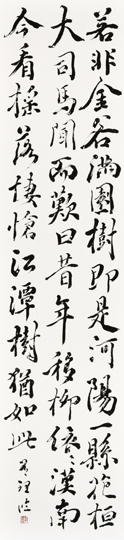 若非金谷滿園樹即是河陽一縣花桓
大司馬聞而歎曰昔年移柳依〻漢南
今看搖落悽愴江潭樹猶如此